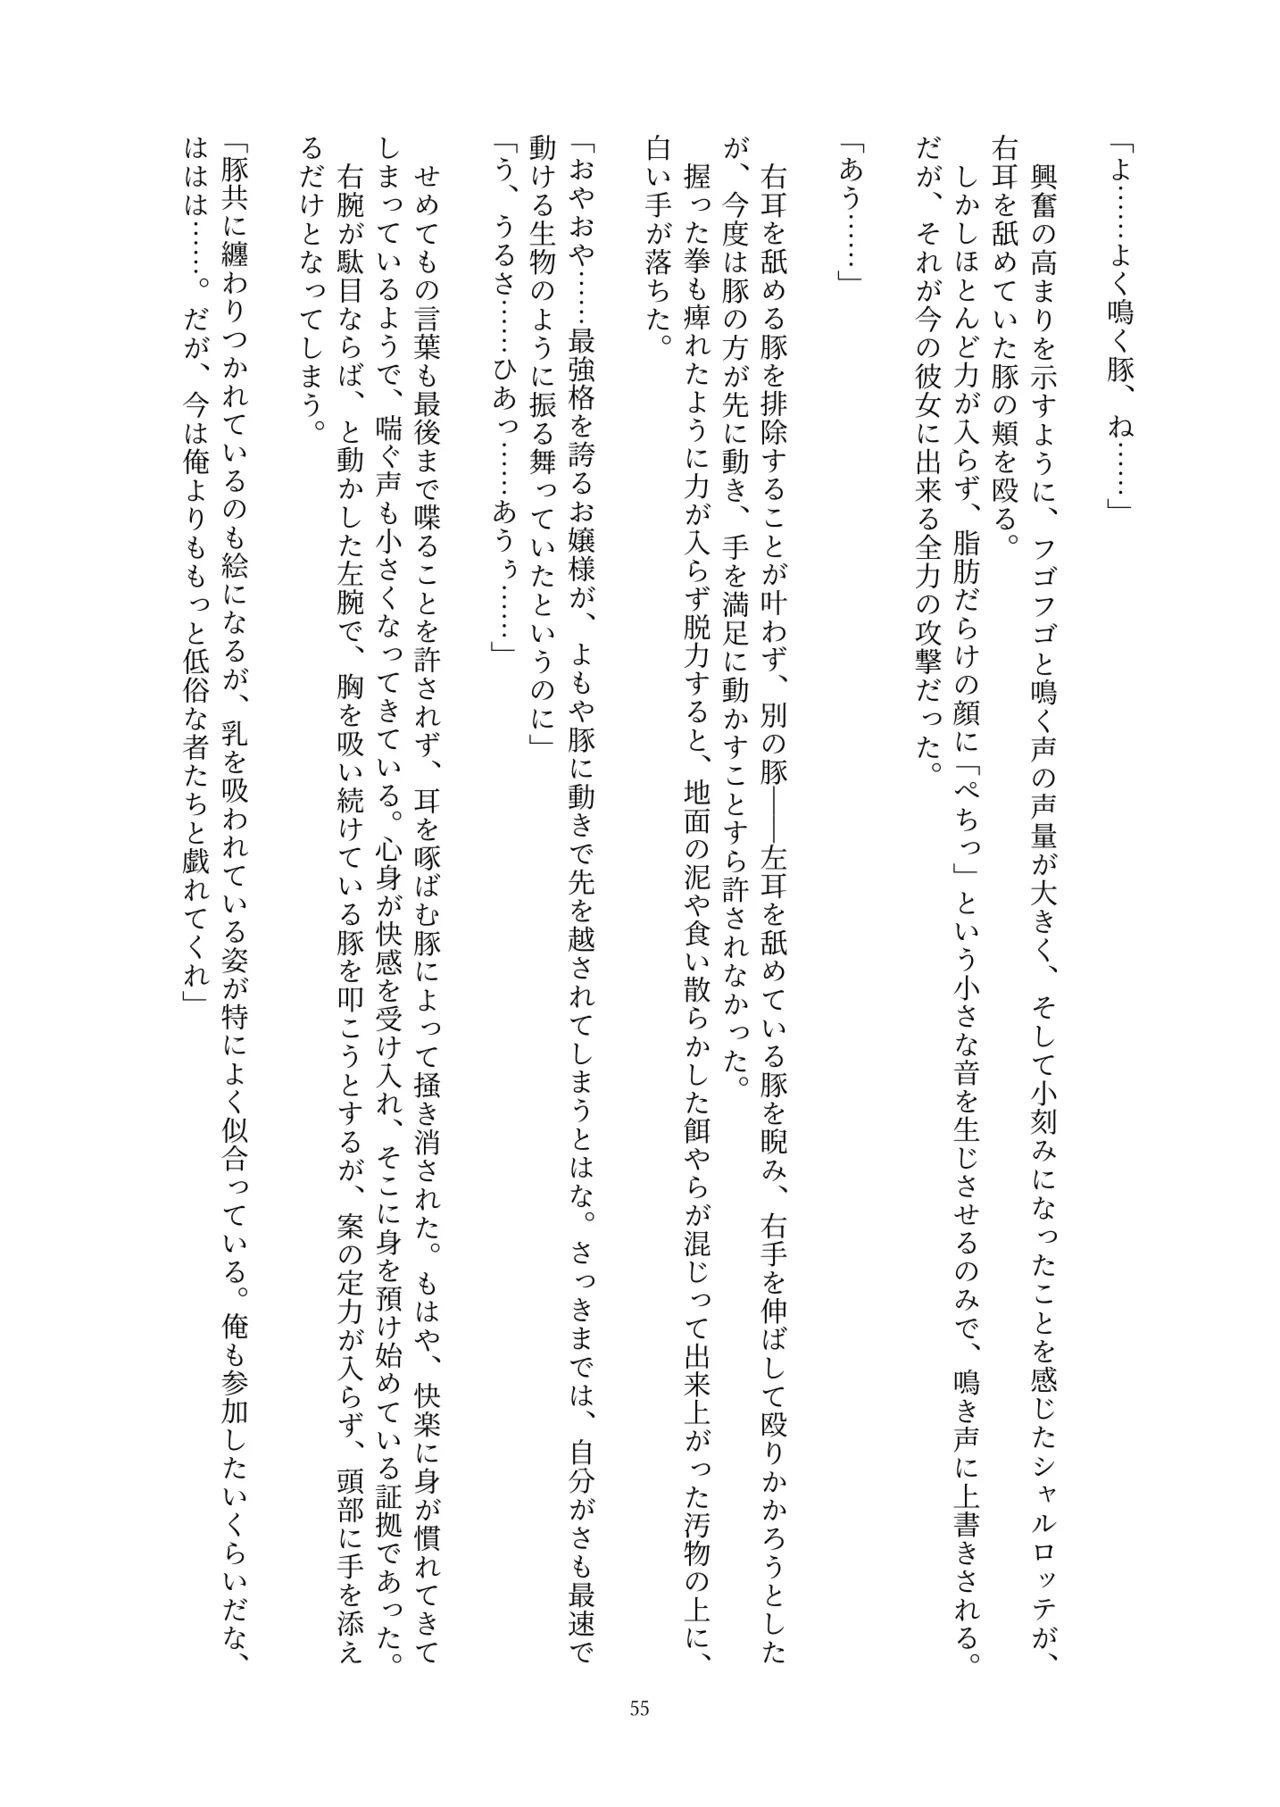 「よ……よく鳴く豚、ね……」
　興奮の高まりを示すように、フゴフゴと鳴く声の声量が大きく、そして小刻みになったことを感じたシャルロッテが、
右耳を舐めていた豚の頬を殴る。
　しかしほとんど力が入らず、脂肪だらけの顔に「ぺちっ」という小さな音を生じさせるのみで、鳴き声に上書きされる。
だが、それが今の彼女に出来る全力の攻撃だった。
「あう……」
　右耳を舐める豚を排除することが叶わず、別の豚――左耳を舐めている豚を睨み、右手を伸ばして殴りかかろうとした
が、今度は豚の方が先に動き、手を満足に動かすことすら許されなかった。
　握った拳も痺れたように力が入らず脱力すると、地面の泥や食い散らかした餌やらが混じって出来上がった汚物の上に、
白い手が落ちた。
「おやおや……最強格を誇るお嬢様が、よもや豚に動きで先を越されてしまうとはな。さっきまでは、自分がさも最速で
動ける生物のように振る舞っていたというのに」
「う、うるさ……ひあっ……あうぅ……」
　せめてもの言葉も最後まで喋ることを許されず、耳を啄ばむ豚によって掻き消された。もはや、快楽に身が慣れてきて
しまっているようで、喘ぐ声も小さくなってきている。心身が快感を受け入れ、そこに身を預け始めている証拠であった。
　右腕が駄目ならば、と動かした左腕で、胸を吸い続けている豚を叩こうとするが、案の定力が入らず、頭部に手を添え
るだけとなってしまう。
「豚共に纏わりつかれているのも絵になるが、乳を吸われている姿が特によく似合っている。俺も参加したいくらいだな、
ははは……。だが、今は俺よりももっと低俗な者たちと戯れてくれ」
55